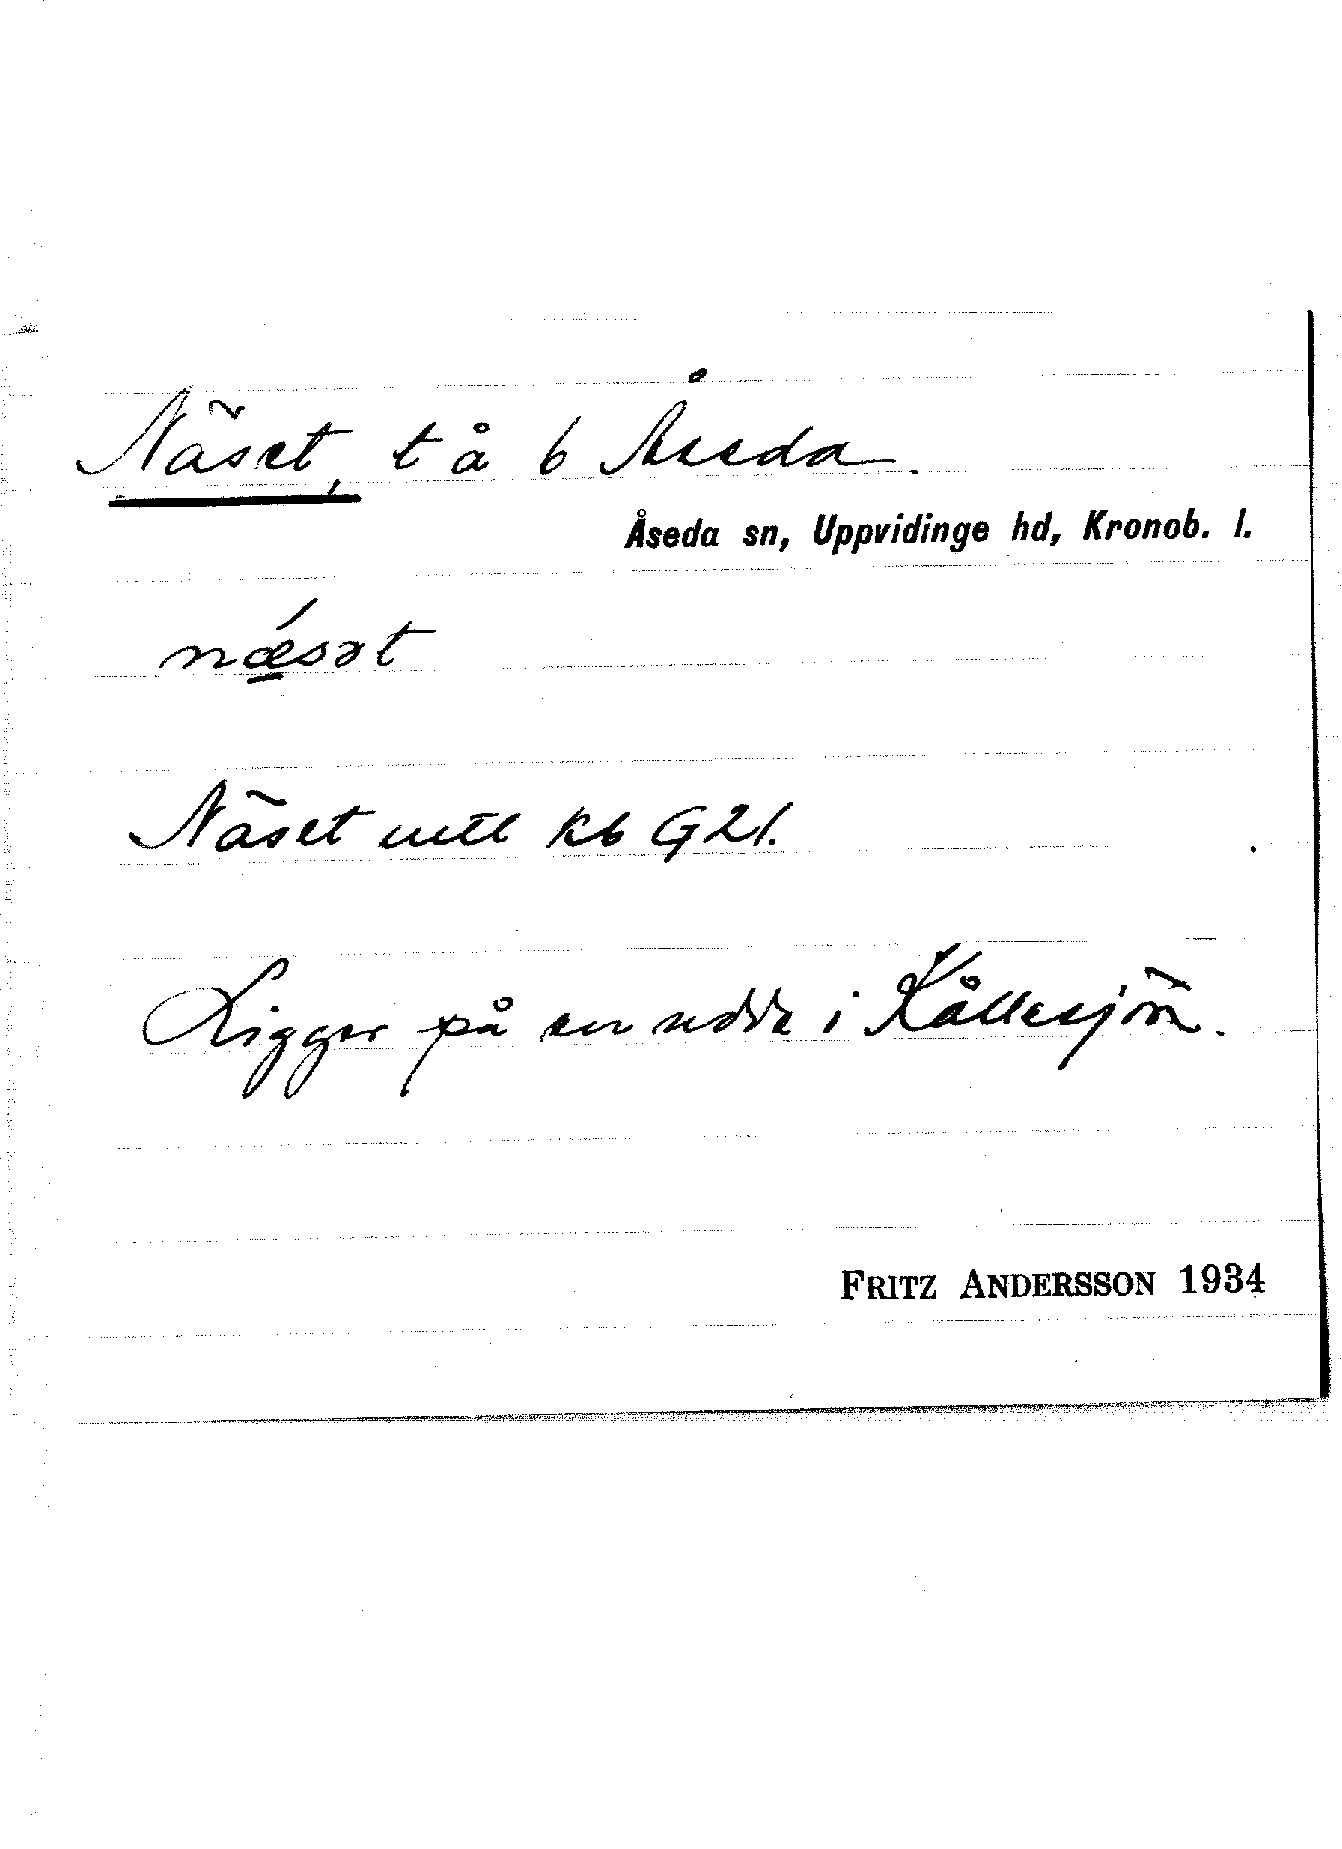 Näset, t å b Åseda.
Åseda sn, Uppvidinge hd, Kronob. l.
nǽsət
Näset mtl kb G21.
Ligger på en udde i Kållesjön.
FRITZ ANDERSSON 1934